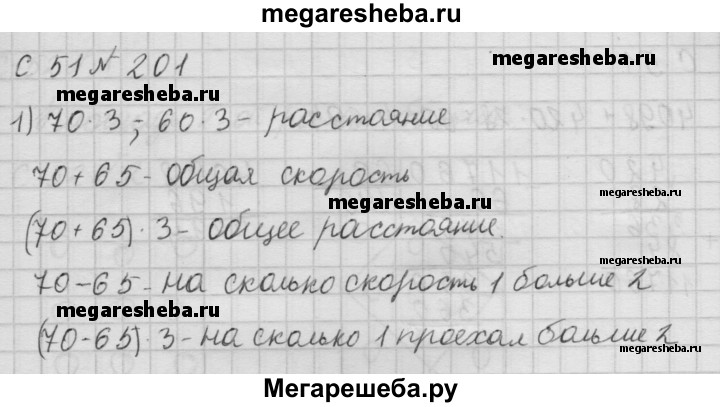 megaresheba.ru
с 51 № 201
megaresheba.ru
megaresheba.ru
1) 70·3; 60·3 - расстояние
70+65 - общая скорость
megaresheba.ru
megaresheba.ru
(70+65)·3 - общее расстояние.
megaresheba.ru
70-65 - на сколько скорость 1 больше 2
megaresheba.ru
(70-65)·3 - на сколько 1 проехал больше 2
megaresheba.ru
Мегарешеба.ру